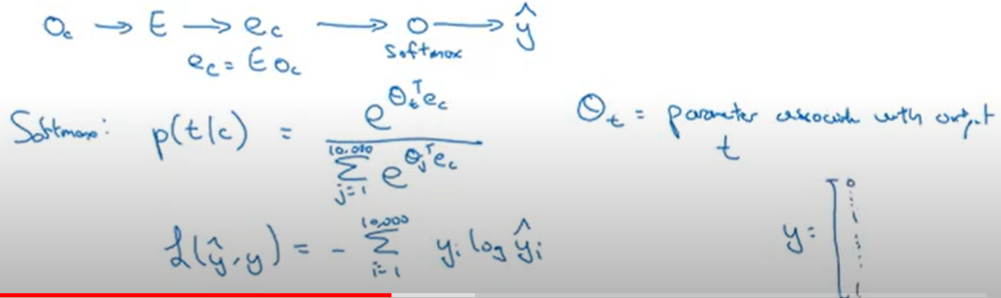 O_c → E → e_c → o → ŷ
Softmax
e_c = E O_c
Softmax: p(t|c) = e^{θ_t^T e_c} / Σ_{j=1}^{10,000} e^{θ_j^T e_c}
θ_t = parameter associated with output t
L(ŷ, y) = - Σ_{i=1}^{10,000} y_i log ŷ_i
y = [0 ⋮ 1 ⋮